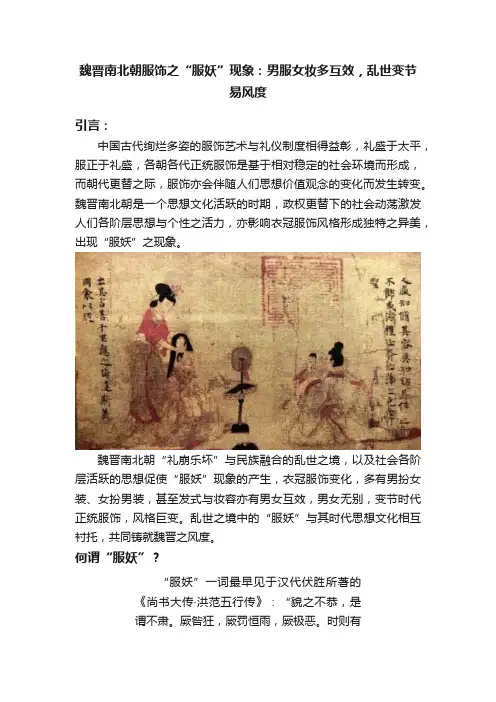 魏晋南北朝服饰之“服妖”现象：男服女妆多互效，乱世变节
易风度
引言：
中国古代绚烂多姿的服饰艺术与礼仪制度相得益彰，礼盛于太平，
服正于礼盛，各朝各代正统服饰是基于相对稳定的社会环境而形成，
而朝代更替之际，服饰亦会伴随人们思想价值观念的变化而发生转变。
魏晋南北朝是一个思想文化活跃的时期，政权更替下的社会动荡激发
人们各阶层思想与个性之活力，亦影响衣冠服饰风格形成独特之异美，
出现“服妖”之现象。
人咸知脩其容莫知飾其性
魏晋南北朝“礼崩乐坏”与民族融合的乱世之境，以及社会各阶
层活跃的思想促使“服妖”现象的产生，衣冠服饰变化，多有男扮女
装、女扮男装，甚至发式与妆容亦有男女互效，男女无别，变节时代
正统服饰，风格巨变。乱世之境中的“服妖”与其时代思想文化相互
衬托，共同铸就魏晋之风度。
何谓“服妖”？
“服妖”一词最早见于汉代伏胜所著的
《尚书大传·洪范五行传》：“貌之不恭，是
谓不肃。厥咎狂，厥罚恒雨，厥极恶。时则有